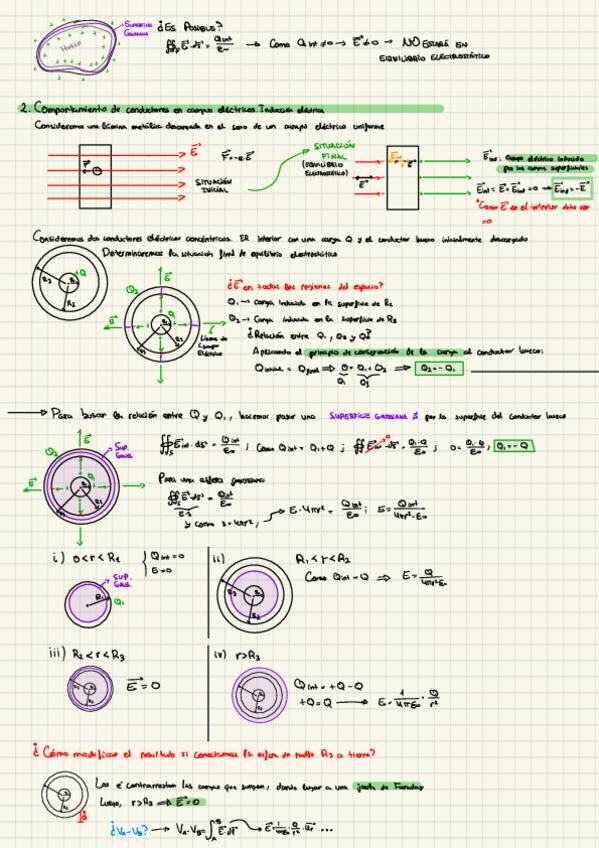 SUPERFICIE GAUSSIANA
HUECO
¿ES POSIBLE?
∯ E·ds = Qint/ε₀ → Como Qint≠0 → E≠0 → NO ESTARÁ EN
EQUILIBRIO ELECTROSTÁTICO
2. Comportamiento de conductores en campos eléctricos. Inducción eléctrica
Consideremos una lámina metálica descargada en el seno de un campo eléctrico uniforme
E
F=-e·E
SITUACIÓN INICIAL
SITUACIÓN FINAL
(EQUILIBRIO ELECTROSTÁTICO)
: campo eléctrico inducido
por las cargas superficiales
Eint = E + Eind = 0 → Eind = -E
*Como E en el interior debe ser
=0
Consideremos dos conductores eléctricos concéntricos. El interior con una carga Q y el conductor hueco inicialmente descargado
Determinaremos la situación final de equilibrio electrostático
¿E en todas las regiones del espacio?
Q₁ → carga inducida en la superficie de R₂
Q₂ → Carga inducida en la superficie de R₃
¿Relación entre Q₁, Q₂ y Q?
Líneas de Campo Eléctrico
Aplicando el principio de conservación de la carga al conductor hueco:
⇒ 0 = Q₁ + Q₂ ⇒ Q₂ = -Q₁
→ Para buscar la relación entre Q y Q₁, hacemos pasar una SUPERFICIE GAUSSIANA S por la superficie del conductor hueco
SUP. GAUS.
∯ Eint·ds = Qint/ε₀ ; Como Qint = Q₁+Q ; Q₁ = -Q
Para una esfera gaussiana
∯ E·ds = Qint/ε₀
E·S
y como S=4πr² ; → E·4πr² = Qint/ε₀ ; E = Q/4πr²·ε₀
i) 0<r<R₁ { Qint=0
E=0
SUP. GAUS.
R₁
ii) R₁<r<R₂
Como Qint=Q ⇒ E = Q/4πr²ε₀
iii) R₂<r<R₃
E = 0
iv) r>R₃
Qint = +Q-Q
+Q=Q → E = 1/4πε₀ · Q/r²
¿Cómo modificar el resultado si conectamos la esfera de radio R₃ a tierra?
Los e⁻ contrarrestan las cargas que surgen, dando lugar a una jaula de Faraday
Luego, r>R₂ ⇒ E=0
¿VA-VB? → VA-VB = ∫ E·dr → E = 1/4πε₀ · Q/r² · ur ...